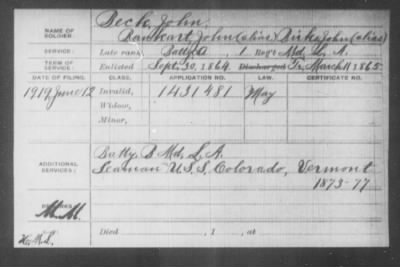 Beck, John,
NAME OF SOLDIER:
Rankeart, John (alias) Birke, John (alias)
SERVICE:
Late rank, Batty A, 1 Regt Md. L. A.
TERM OF SERVICE:
Enlisted Sept. 30, 1864, Discharged Tr. March 11, 1865.
DATE OF FILING. CLASS. APPLICATION NO. LAW. CERTIFICATE NO.
1919 June 12 Invalid, 1431481 May
Widow,
Minor,
ADDITIONAL SERVICES:
Batty. B Md. L. A.
Seaman U.S.S. Colorado, Vermont
1873-77
REMARKS:
M. M.
Died , 1 , at